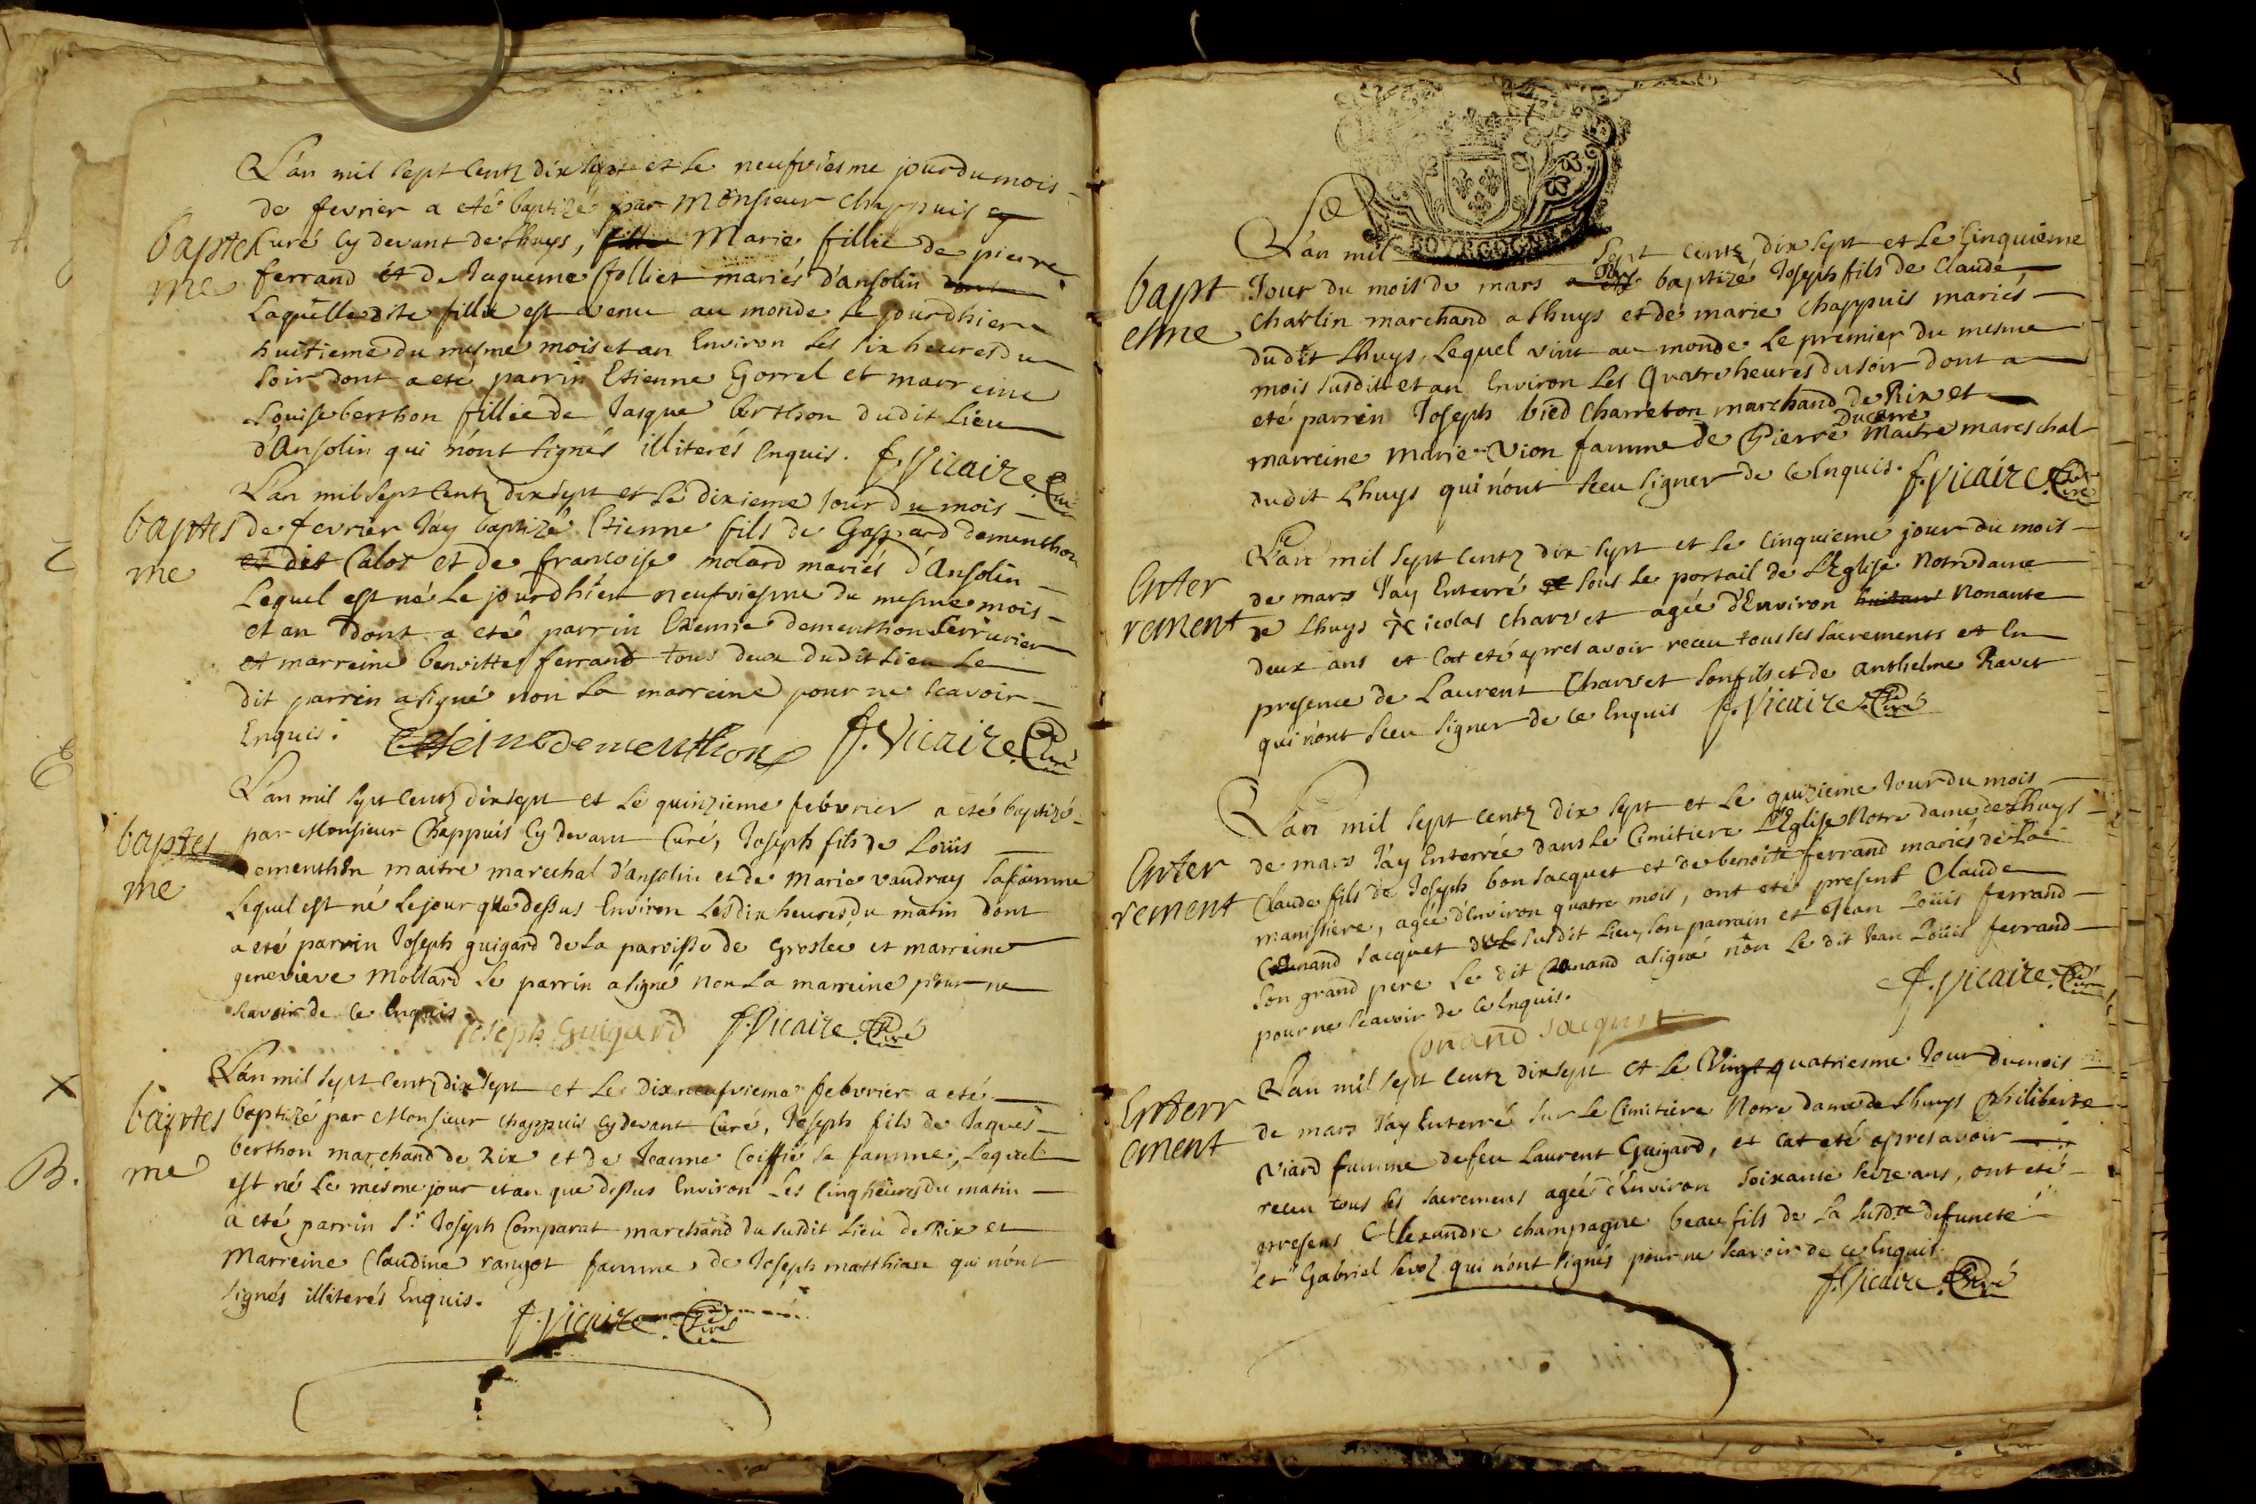 L'an mil sept centz dix sept et le neufviesme jour du mois
de fevrier a eté baptizé par Monsieur Chappuis
baptes
me
curé cy devant de Lhuys, Marie fillie de pierre
ferrand et de Jaqueme follict mariés d'ansolin
Laquelle dite fillie est venue au monde le jourdhier
huitieme du mesme mois et an Environ les six heures du
soir dont a eté parrin Etienne Gorrel et marreine
Louise berthon fillie de Jasque berthon dudit Lieu
d'Ansolin qui n'ont signés illiterés Enquis. f. Vicaire Curé
L'an mil sept centz dix sept et le dixieme Jour du mois
baptes
me
de fevrier J'ay baptizé Etienne fils de Gaspard dementhon
et dit Calot et de francoise molard mariés d'Ansolin
Lequel est né le jourdhier neufviesme du mesme mois
et an dont a eté parrin Etienne dementhon serrurier
et marreine benoitte ferrand tous deux dudit Lieu Le
dit parrin a signé non la marreine pour ne scavoir
Enquis. Esteinedementhon f. Vicaire. Curé
L'an mil sept centz dix sept et le quinzieme febvrier a eté baptizé
baptes
me
par Monsieur Chappuis cy devant Curé, Joseph fils de Loüis
dementhon maitre marechal d'ansolin et de Marie vaudray sa famme
Lequel est né le jour que dessus Environ les dix heures du matin dont
a eté parrin Joseph guigard de la paroisse de Groslée et marreine
genevieve Mollard le parrin a signé non La marreine pour ne
scavoir de ce Enquis
Joseph Guigard f. Vicaire. Curé
L'an mil sept centz dix sept et le dix neufvieme febvrier a eté
baptes
me
baptizé par Monsieur Chappuis cy devant Curé, Joseph fils de Jaques
berthon marchand de Rix et de Jeanne Coiffié sa famme, Lequel
est né le mesme jour et an que dessus Environ Les cinq heures du matin
a eté parrin Sr. Joseph Comparat marchand du susdit Lieu de Rix et
Marreine Claudine rangot famme de Joseph matthian qui n'ont
signés illiterés Enquis.
f. Vicaire. Curé
BOURGOGNE
L'an mil sept centz dix sept et Le Cinquieme
bapt
esme
Jour du mois de mars baptizé Joseph fils de Claude
Charlin marchand a Lhuys et de marie Chappuis mariés
dudit Lhuys, Lequel vint au monde Le premier du mesme
mois susdit et an Environ Les Quatre heures du soir dont a
eté parrin Joseph bied Charreton marchand de Rix et
marreine Marie Vion famme de Pierre Ducarre Maitre mareschal
dudit Lhuys qui n'ont sceu signer de ce Enquis. f. Vicaire. Curé
L'an mil sept centz dix sept et le cinquieme jour du mois
Enter
rement
de mars J'ay Enterré sous le portail de L'Eglise Notre dame
de Lhuys Nicolas Charvet agée d'Environ nonante
deux ans et Cat eté apres avoir receu tous les sacrements et En
presence de Laurent Charvet son fils et de anthelme Ravet
qui n'ont sceu signer de ce Enquis f. Vicaire. Curé
L'an mil sept centz dix sept et le quizieme Jour du mois
Enter
rement
de mars J'ay Enterrée dans le Cimitiere L'Eglise Notre dame de Lhuys
Claude fils de Joseph bon Jacquet et de benoitte ferrand mariés de La
manissiere, agée d'Environ quatre mois, ont eté present Claude
Conand Jacquet du susdit Lieu, son parrain et Jean Loüis ferrand
son grand pere Le dit Conand a signé non le dit Jean Loüis ferrand
pour ne scavoir de ce Enquis.
f. Vicaire. Curé
Conand Jacquet
L'an mil sept centz dix sept et le Vingt quatriesme Jour du mois
Enterr
ement
de mars J'ay Enterré sur le Cimitiere Notre dame de Lhuys Philiberte
Viard famme de feu Laurent Guigard, et Cat eté apres avoir
receu tous les sacremens agée d'Environ soixante seize ans, ont eté
presens Alexandre Champagne beau fils de La susdte defuncte
et Gabriel Sevoz qui n'ont signés pour ne scavoir de ce Enquis.
f. Vicaire. Curé
B.